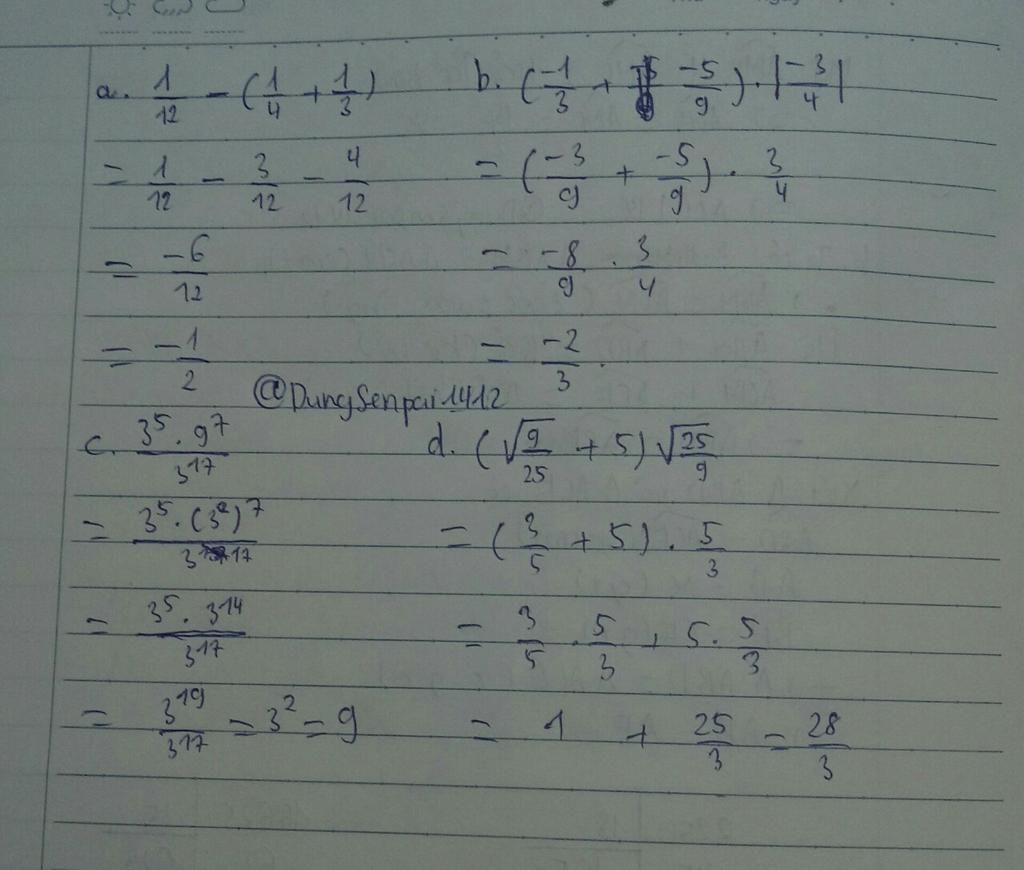 a. 1/12 - (1/4 + 1/3)
= 1/12 - 3/12 - 4/12
= -6/12
= -1/2
b. (-1/3 + -5/9) . |-3/4|
= (-3/9 + -5/9) . 3/4
= -8/9 . 3/4
= -2/3.
@DungSenpai1412
c. 3^5 . 9^7 / 3^17
= 3^5 . (3^2)^7 / 3^17
= 3^5 . 3^14 / 3^17
= 3^19 / 3^17 = 3^2 = 9
d. (√9/25 + 5) √25/9
= (3/5 + 5) . 5/3
= 3/5 . 5/3 + 5 . 5/3
= 1 + 25/3 = 28/3